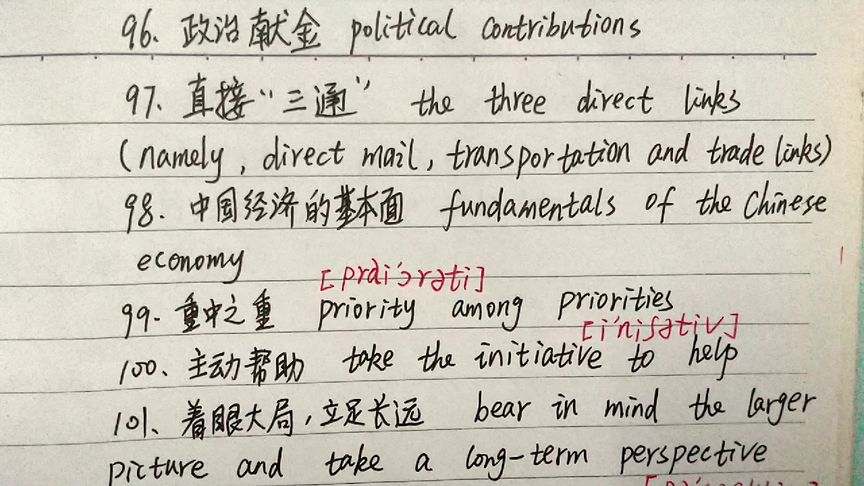 96. 政治献金 political contributions
97. 直接“三通” the three direct links
(namely, direct mail, transportation and trade links)
98. 中国经济的基本面 fundamentals of the Chinese
economy
[prai'ɔrəti]
99. 重中之重 priority among priorities
[i'niʃətiv]
100、主动帮助 take the initiative to help
101、着眼大局,立足长远 bear in mind the larger
picture and take a long-term perspective